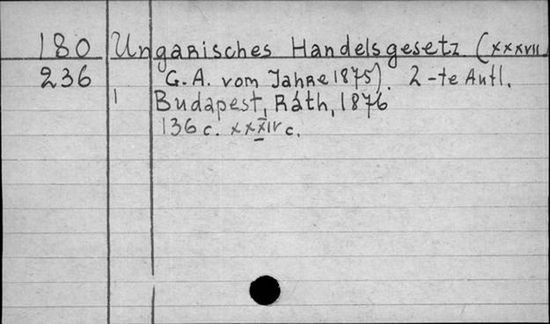 180 Ungarisches Handelsgesetz (XXXVII.
236 G. A. vom Jahre 1875). 2-te Aufl.
1 Budapest, Ráth, 1876
136 c. XXXIV c.